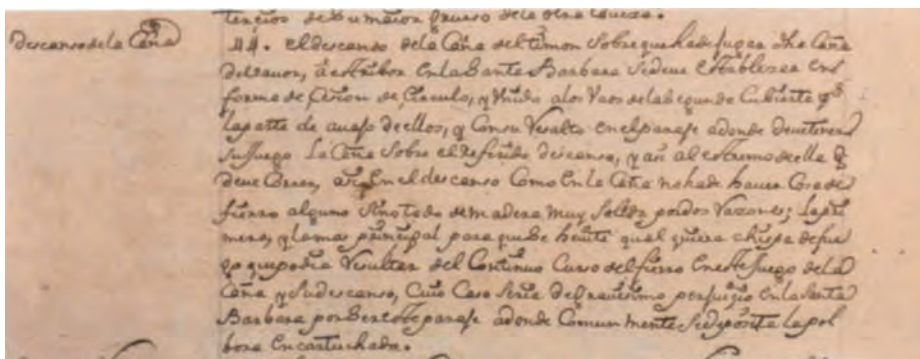 tercios de su maior grueso dela otra Caveza.
Descanso dela Caña
44. el descanso dela Caña del timon sobre que ha de jugar dha Caña
de Bavor, à estribor en la Santa Barbara se deve establezer en
forma de Cercon de Circulo, y Unido alos Vaos dela segunda Cubierta pr
la parte de avajo de ellos, y Con su Resalto en el paraje adonde deve tener
su Juego La Caña sobre el referido descanso, y asi al estremo de ella q
deve Correr, asi en el descanso Como en La Caña no ha de haver Cosa de
fierro alguno sino todo de madera muy solida por dos Razones; La pri
mera, y la mas principal para que se hevite qual quiera chispa de fue
go que podia Resultar del Continuo Curso del fierro en este Juego dela
Caña y su descanso, Cuio Caso sería de gravisimo perjuizio en la Santa
Barbara por ser este paraje adonde Comun mente se deposita la pol
bora encartuchada.